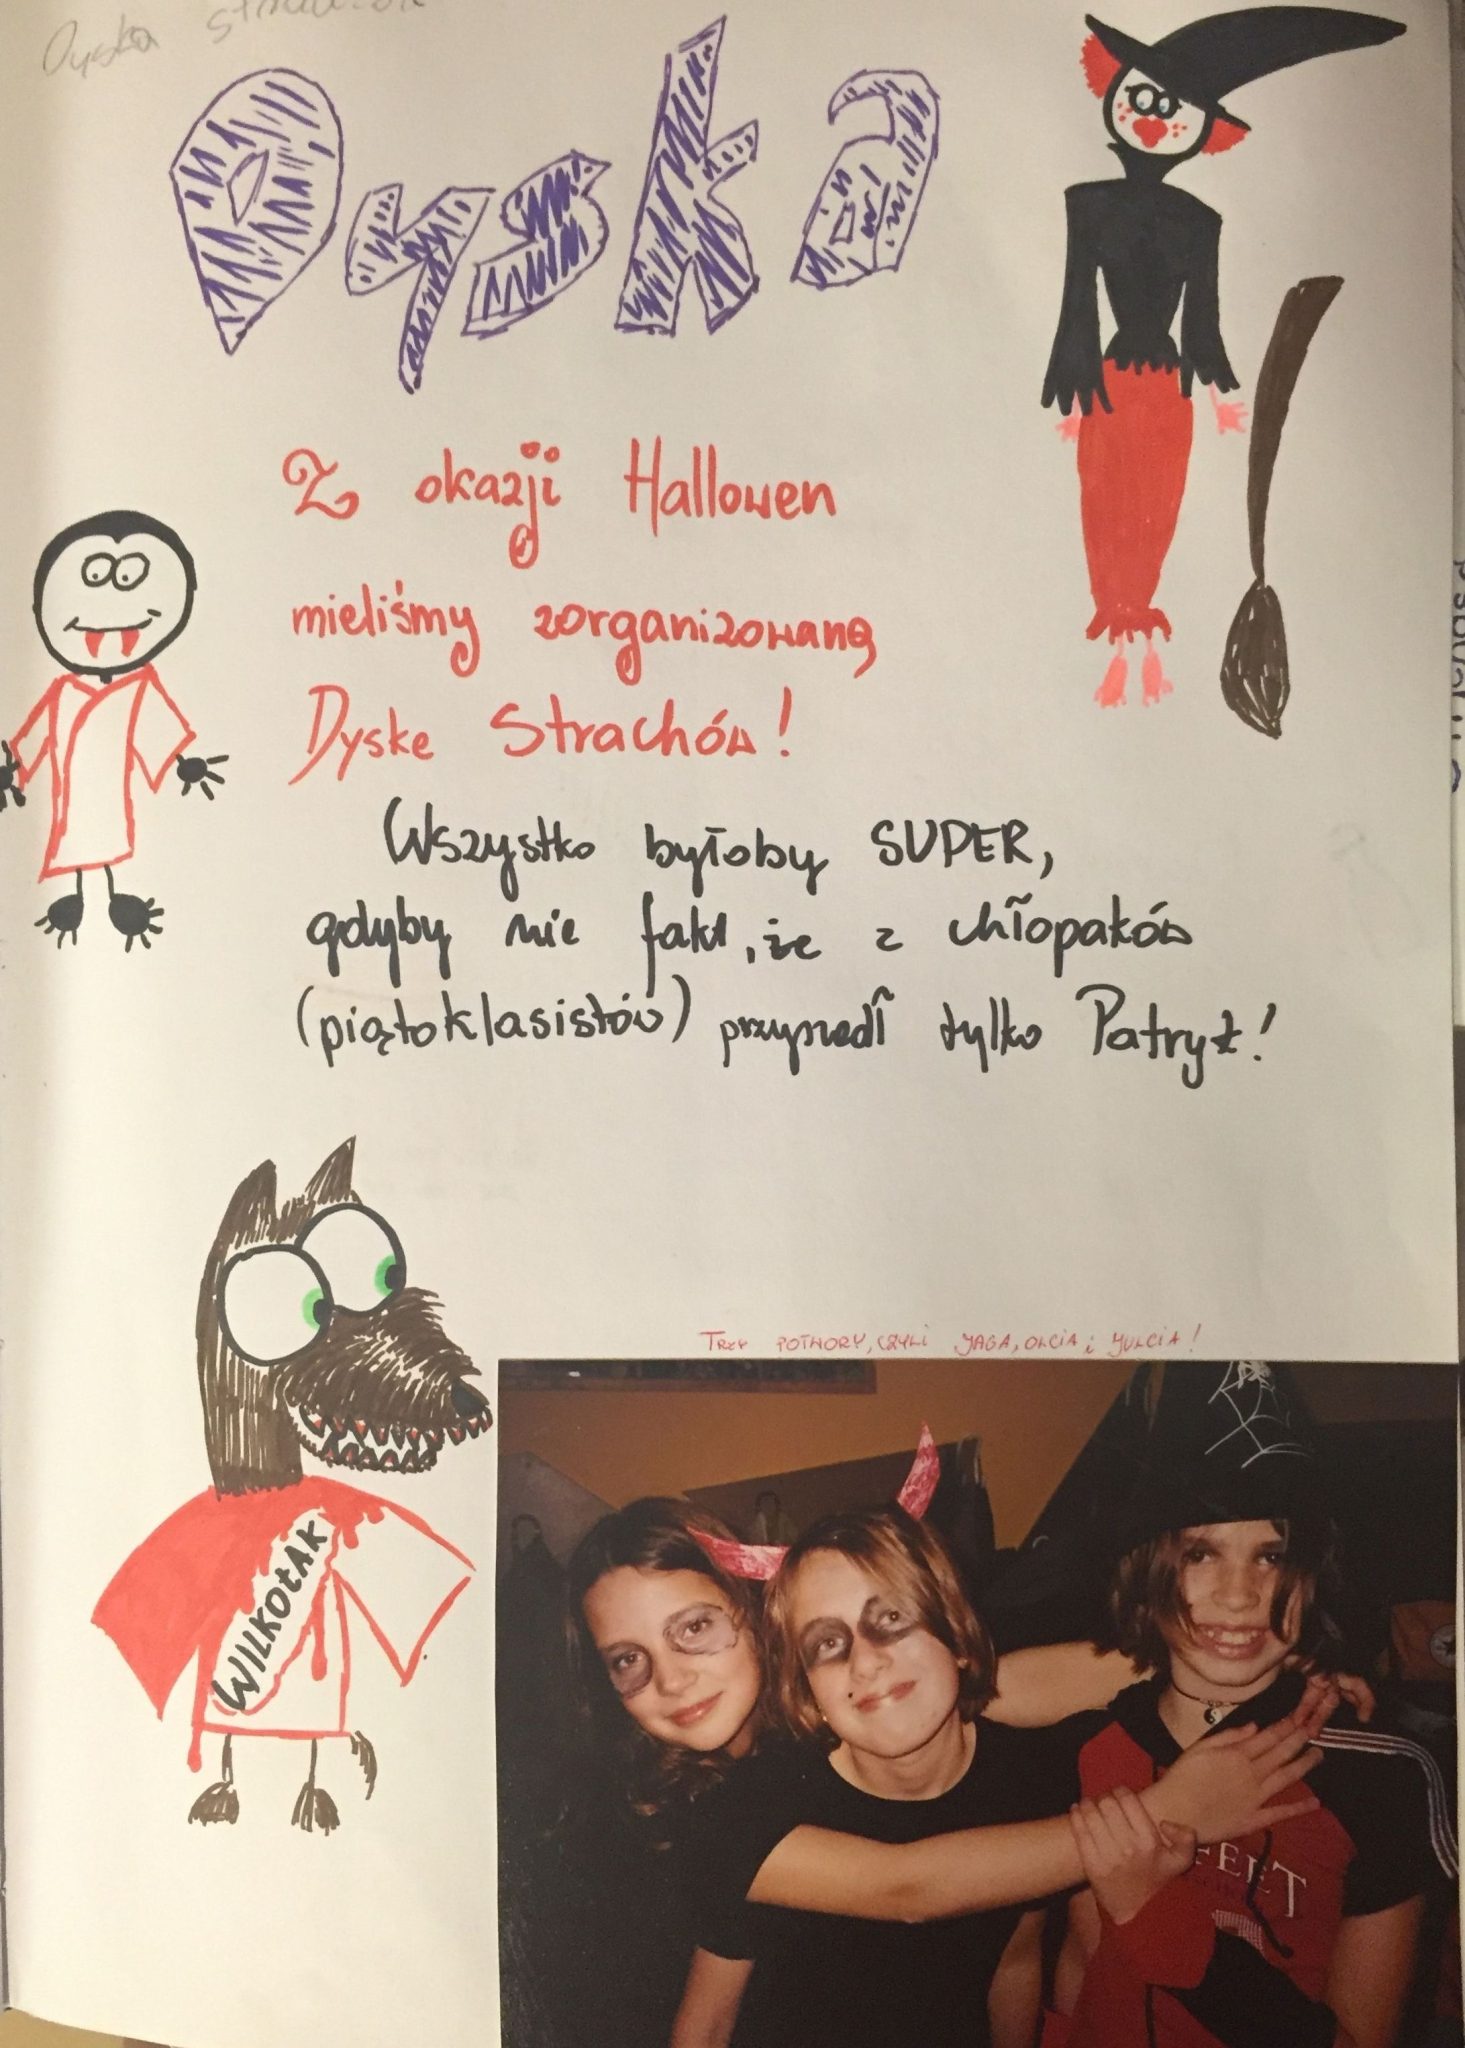 Dyska
Dyska
Z okazji Hallowen
mieliśmy zorganizowaną
Dyske Strachów!
Wszystko byłoby SUPER,
gdyby nie fakt, że z chłopaków
(piątoklasistów) przyszedł tylko Patryk!
Trzy potwory, czyli Jaga, Olcia i Julcia!
WILKOŁAK
FEET